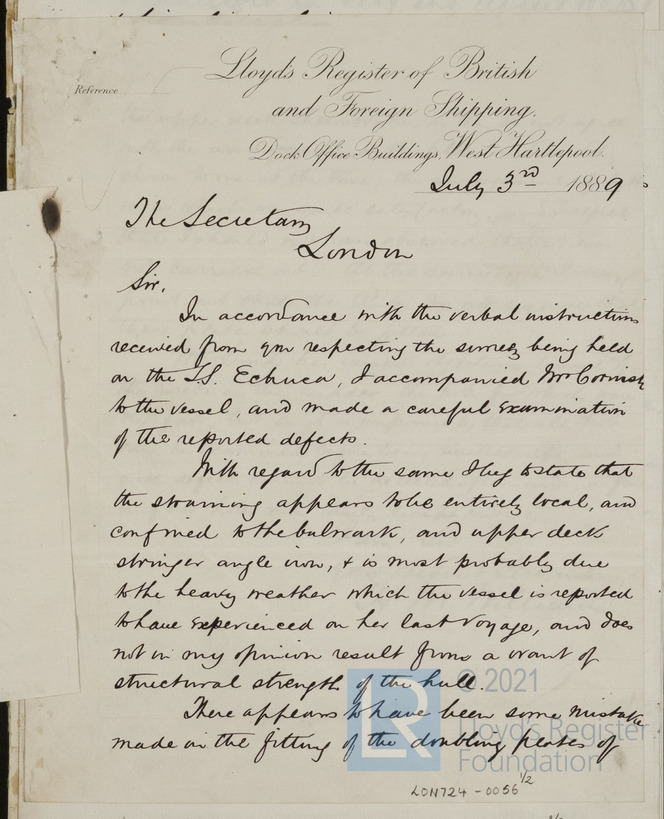 Lloyd's Register of British
Reference
and Foreign Shipping.
Dock Office Buildings, West Hartlepool.
July 3rd 1889
The Secretary
London
Sir,
In accordance with the verbal instructions
received from you respecting the survey being held
on the S.S. Echuca, I accompanied Mr Cornish
to the vessel, and made a careful examination
of the reported defects.
With regard to the same I beg to state that
the straining appears to be entirely local, and
confined to the bulwark, and upper deck
stringer angle iron, & is most probably due
to the heavy weather which the vessel is reported
to have experienced on her last voyage, and does
not in my opinion result from a want of
structural strength of the hull.
There appears to have been some mistake
made in the fitting of the doubling plates of
LR © 2021
Lloyd's Register
Foundation
LON724-0056 1/2